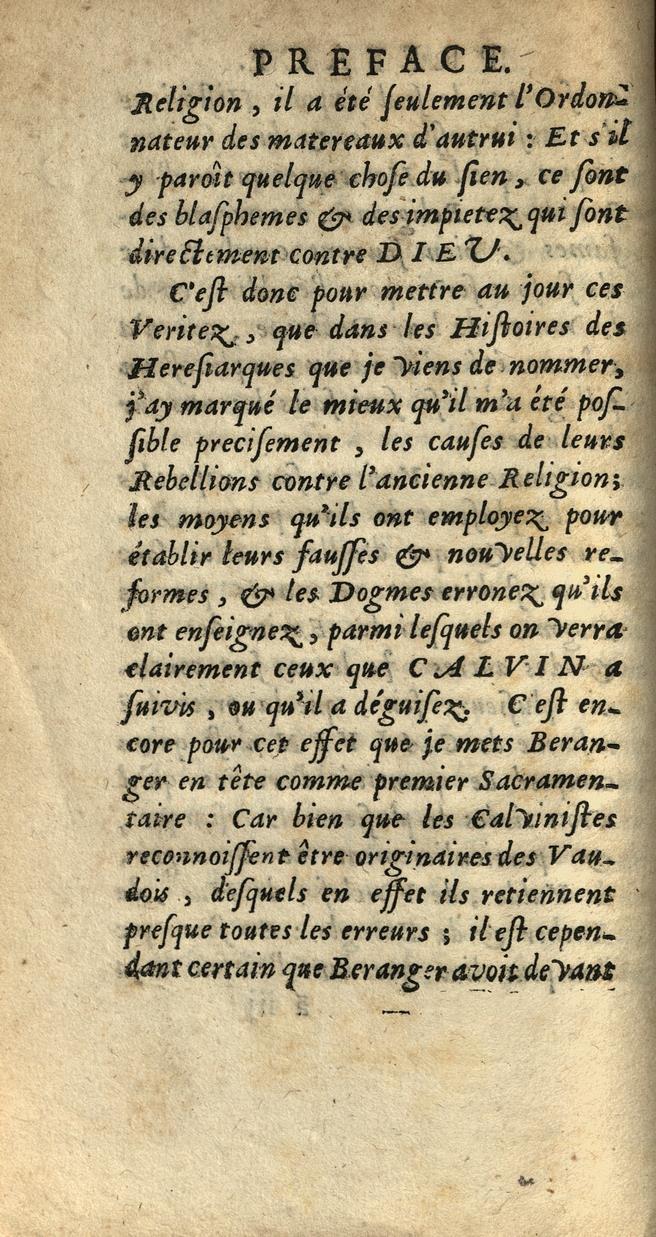 PREFACE.
Religion, il a été ſeulement l'Ordon-
nateur des matereaux d'autrui : Et s'il
y paroît quelque choſe du ſien, ce ſont
des blaſphemes & des impietez qui ſont
directement contre DIEU.
C'eſt donc pour mettre au jour ces
Veritez, que dans les Hiſtoires des
Hereſiarques que je viens de nommer,
j'ay marqué le mieux qu'il m'a été poſ-
ſible preciſement, les cauſes de leurs
Rebellions contre l'ancienne Religion;
les moyens qu'ils ont employez pour
établir leurs fauſſes & nouvelles re-
formes, & les Dogmes erronez qu'ils
ont enſeignez, parmi leſquels on verra
clairement ceux que CALVIN a
ſuivis, ou qu'il a déguiſez. C'eſt en-
core pour cet effet que je mets Beran-
ger en tête comme premier Sacramen-
taire : Car bien que les Calviniſtes
reconnoiſſent être originaires des Vau-
dois, deſquels en effet ils retiennent
preſque toutes les erreurs ; il eſt cepen-
dant certain que Beranger avoit devant